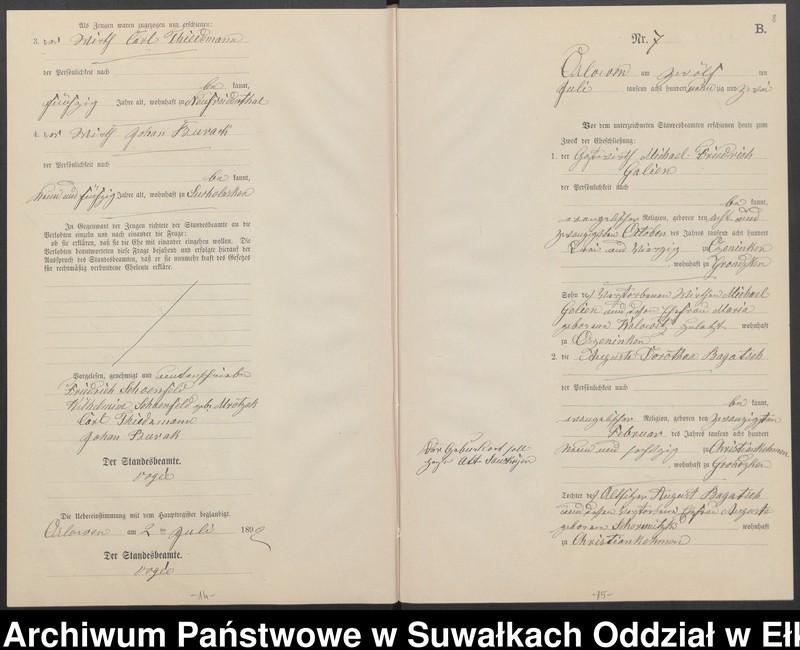 Als Zeugen waren zugezogen und erschienen:
3. der Wirth Carl Thiedmann
der Persönlichkeit nach
be kannt,
fünfzig Jahre alt, wohnhaft zu Neufreudenthal
4. der Wirth Johan Burak
der Persönlichkeit nach
be kannt,
neun und fünfzig Jahre alt, wohnhaft zu
In Gegenwart der Zeugen richtete der Standesbeamte an die
Verlobten einzeln und nach einander die Frage:
ob sie erklären, daß sie die Ehe mit einander eingehen wollen. Die
Verlobten beantworteten diese Frage bejahend und erfolgte hierauf der
Ausspruch des Standesbeamten, daß er sie nunmehr kraft des Gesetzes
für rechtmäßig verbundene Eheleute erkläre.
Vorgelesen, genehmigt und unterschrieben
Friedrich Schoenfeld
Wilhelmine Schoenfeld geb. Mrotzek
Carl Thiedemann
Johan Burak
Der Standesbeamte.
Die Uebereinstimmung mit dem Hauptregister beglaubigt.
Orlowen am 2 ten Juli 1892
Der Standesbeamte.
-14-
8
B.
Nr. 7
Orlowen am zwölf ten
Juli tausend acht hundert neun zig und zwei
Vor dem unterzeichneten Standesbeamten erschienen heute zum
Zweck der Eheschließung:
1. der Michael Friedrich
Galien
der Persönlichkeit nach
be kannt,
evangelischer Religion, geboren den acht und
zwanzigsten October des Jahres tausend acht hundert
und vierzig zu Czeninken
, wohnhaft zu Grondzken
Sohn des verstorbenen Wirthen Michael
Galien und dessen Ehefrau Maria
geborene zuletzt wohnhaft
zu Czeninken
2. die Auguste Dorothea Bagatsch
der Persönlichkeit nach
be kannt,
evangelischer Religion, geboren den zwanzigsten
Februar des Jahres tausend acht hundert
neun und sechszig zu Christiankehmen
, wohnhaft zu Grondzken
Der Geburtsort soll
Alt
Tochter des Altsitzer August Bagatsch
und dessen verstorbene Ehefrau Auguste
geborene wohnhaft
zu Christiankehmen
-15-
Archiwum Państwowe w Suwałkach Oddział w Ełk